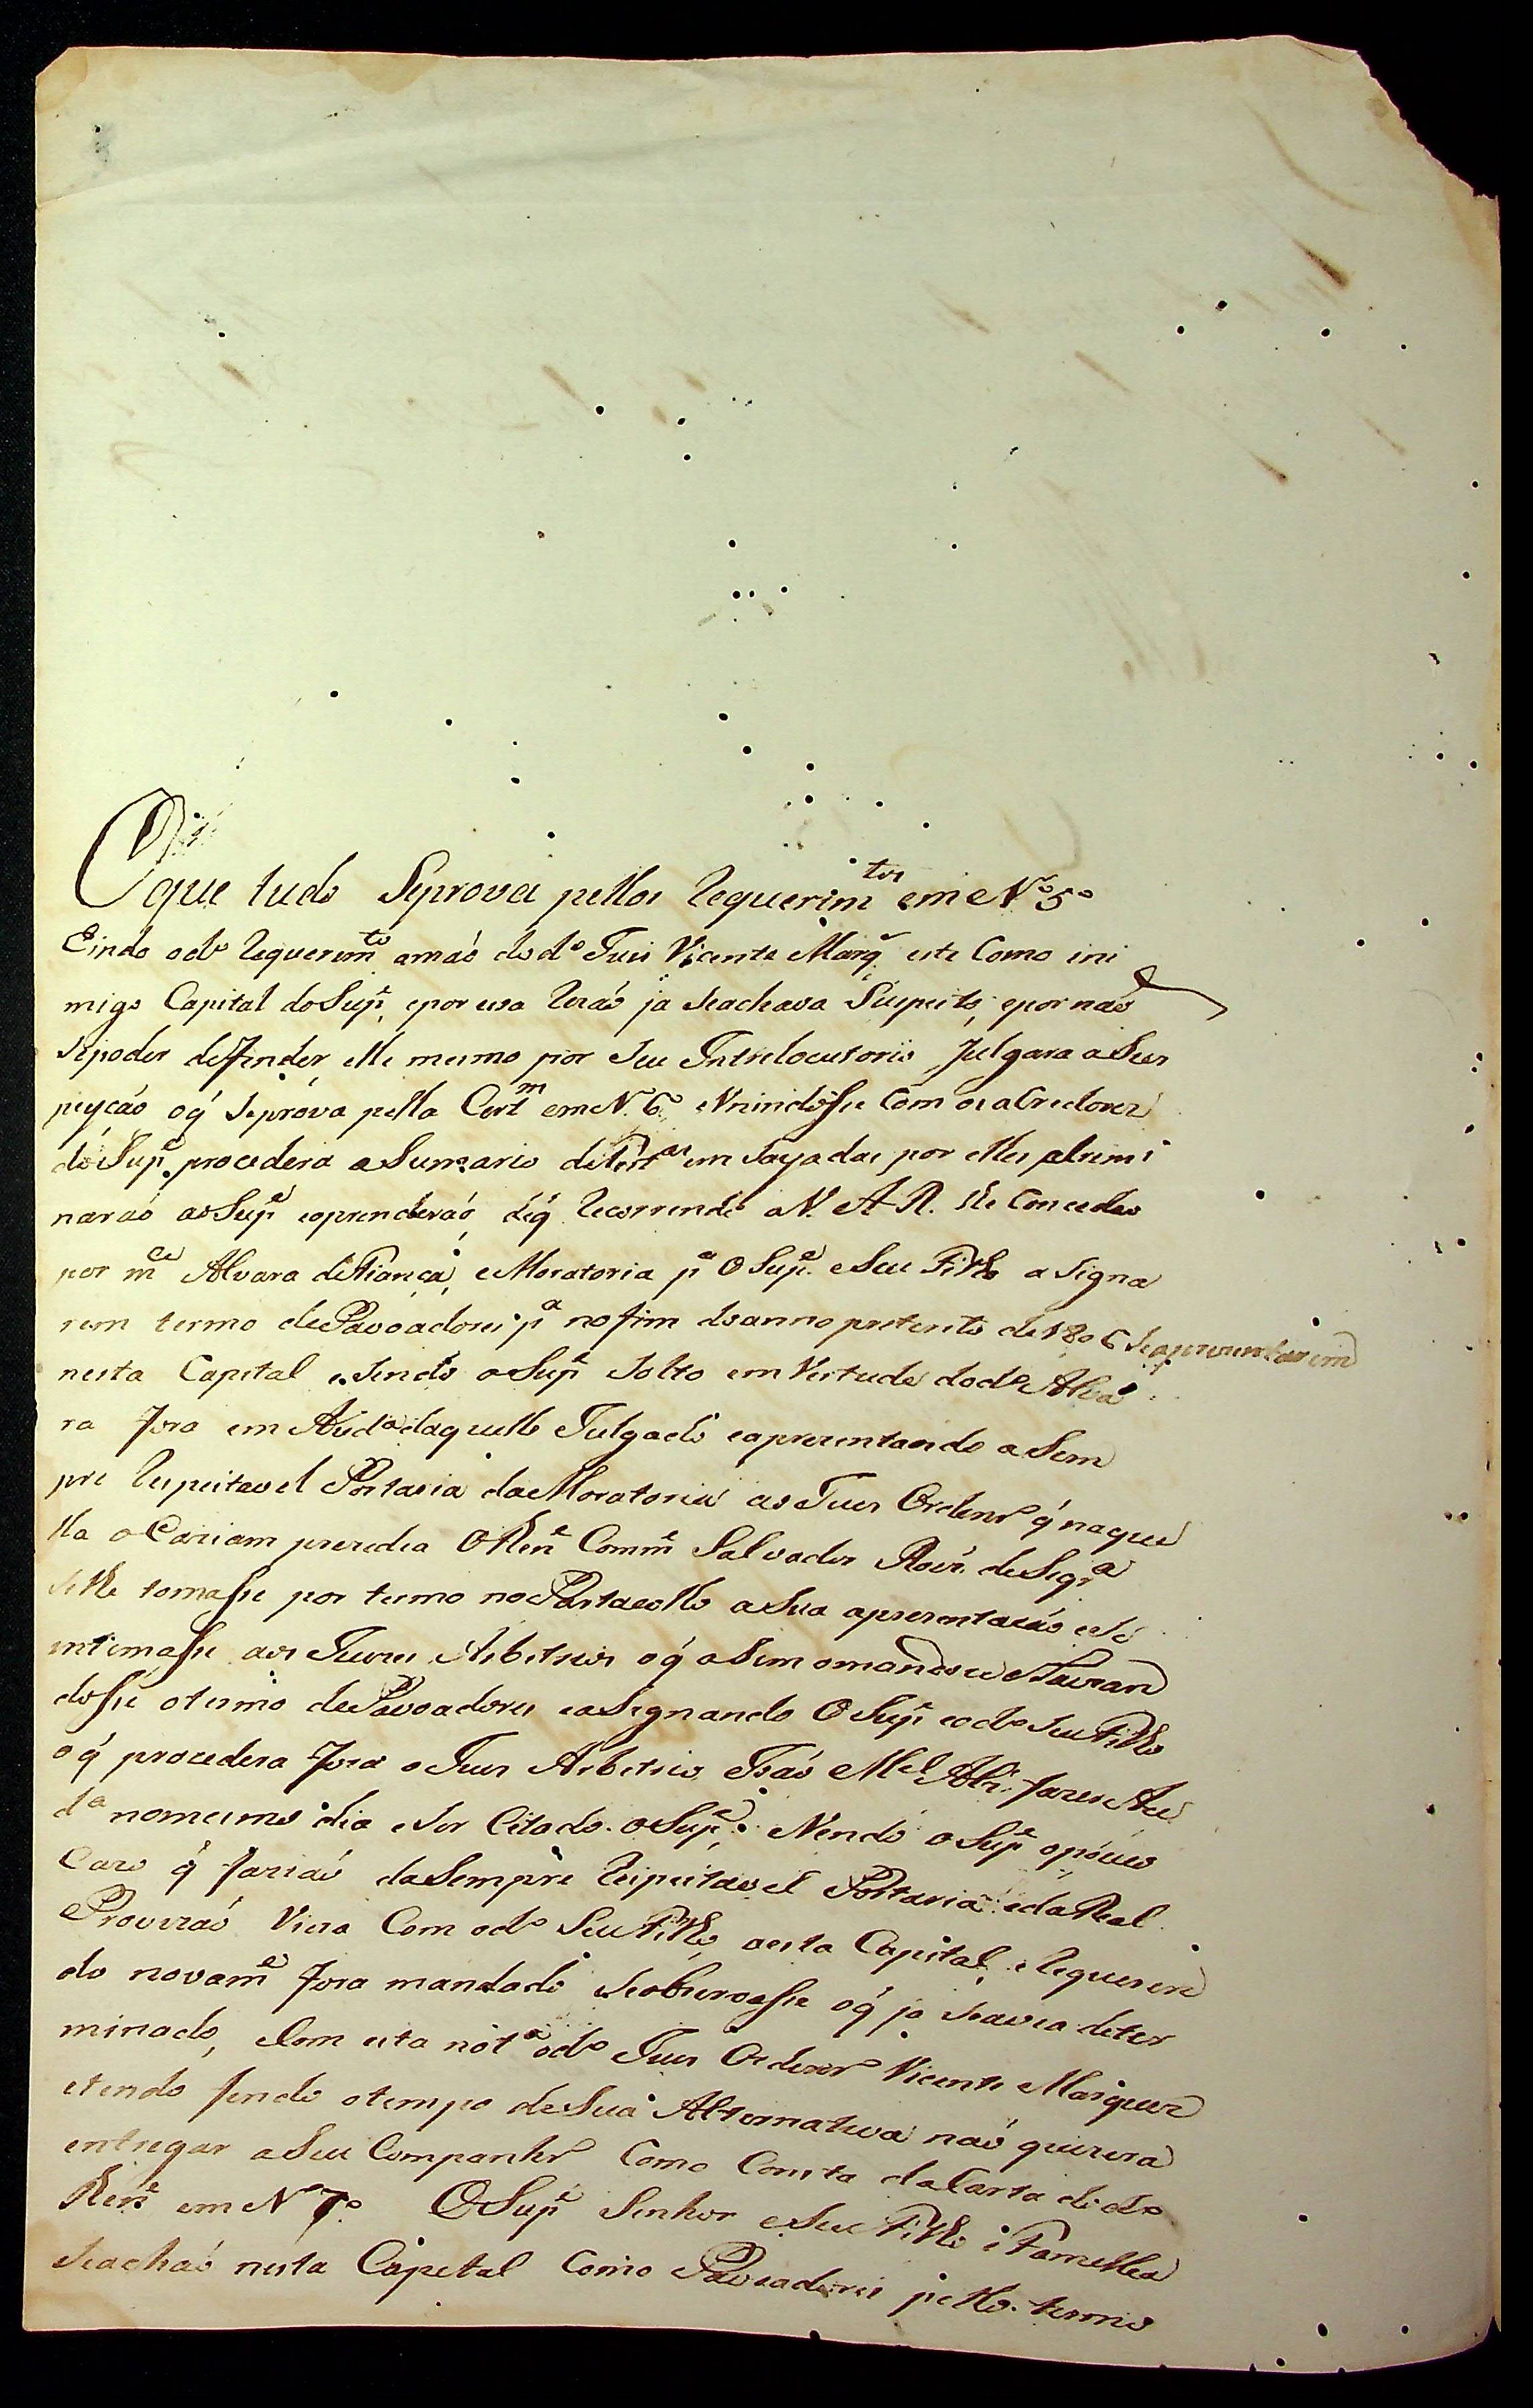 O que tudo Seprova pellos Requerim.tos em N.º 5º
Eindo od.º Requerim.to amaõ do d.º Juis Vicente Marq.' este Como ini
migo Capital doSup.e, epor essa Rezaõ ja seachava Suspeito, epor naõ
sepoder deffender elle mesmo por seu Intrelocutorio Julgara aSus
peyçaõ oq' seprova pella Cert.m em N.º 6º, eVnindosse Com os aCredores
doSup.e procedera aSumario deTest.as emsayadas por elles
naraõ aoSup.e eoprenderaõ, deq' Recorrendo aV. A. R. lhe Concedeo
por m.ce Alvara defiança, eMoratoria p.a OSup.e eSeu Filho asigna
rem termo dePovoadores p.a nofim doanno preterito de 1806 seaprezentarem
nesta Capital esendo oSup.e Solto em Vertude dod.º Alva
ra fora em Aud.a daquelle Julgado eaprezentando aSem
pre Respeitavel Portaria daMoratoria ao Juis Orden.rº q' naque
lla oCaziam prezedia OTen.e Comm.e Salvador Roiz' deSiqr.a
selhe tomasse por termo noPortacollo aSua aprezentacaõ ese
intimasse aos Juizes Arbitrios oq' aSim omandou eLavran
dosse otermo dePovoadores eaSignando OSup.e eod.º seu Filho
oq' procedera fora oJuis Arbitrio Joaõ M.el Alz' fazer Au
d.a nomesmo dia eser Citado oSup.e: Vendo oSup.e opouco
Cazo q' faziaõ daSempre Respeitavel Portaria edaReal
Provizaõ Viera Com od.º Seu Filho aesta Capital, eRequeren
do novam.e fora mandado seobservasse oq' ja seavia deter
minado, eCom esta not.a od.º Juis Ordenr.º Vicente Marques
etendo findo otempo deSua Alternativa naõ quizera
entregar aSeu Companhr.º Como Consta daCarta dod.º
Ten.e em N.º 7º OSup.e Senhor eSeu Filho e Famellea
seachaõ nesta Capetal Como Povoadores pello termo